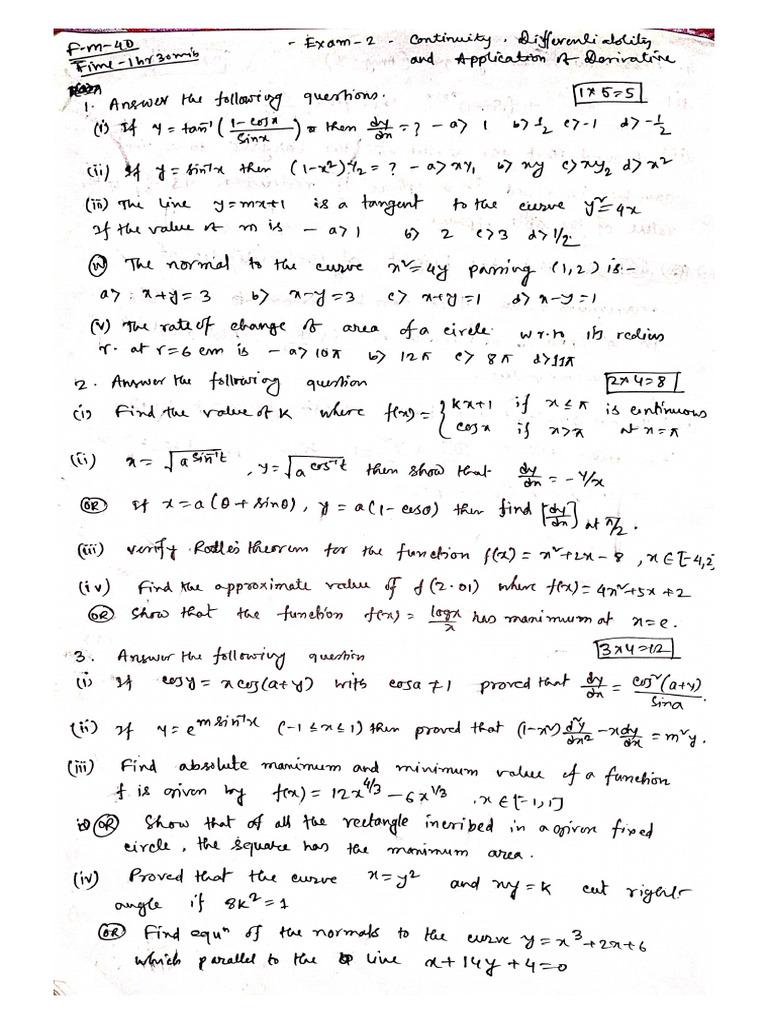 F-M-40 - Exam-2 - Continuity, Differentiability
Time-1hr30min and Application of Derivative
1. Answer the following questions. 1×5=5
(i) If y = tan⁻¹((1-cosx)/sinx) then dy/dx = ? - a> 1 b> ½ c> -1 d> -½
(ii) If y = sin⁻¹x then (1-x²)y₂ = ? - a> xy₁ b> xy c> xy₂ d> x²
(iii) The line y=mx+1 is a tangent to the curve y²=4x
If the value of m is - a> 1 b> 2 c> 3 d> 1/2.
(iv) The normal to the curve x²=4y passing (1,2) is:-
a>: x+y=3 b> x-y=3 c> x+y=1 d> x-y=1
(v) The rate of change of area of a circle w.r.to its radius
r. at r=6 cm is - a> 10π b> 12π c> 8π d> 11π
2. Answer the following question 2×4=8
(i) Find the value of K where f(x) = { kx+1 if x ≤ π is continuous
cosx if x>π at x=π
(ii) x = √(a^(sin⁻¹t)), y = √(a^(cos⁻¹t)) then show that dy/dx = -y/x
OR If x=a(θ+sinθ), y=a(1-cosθ) then find [dy/dx] at π/2.
(iii) verify Rolle's theorem for the function f(x) = x²+2x-8, x∈[-4,2]
(iv) Find the approximate value of f(2.01) where f(x)=4x²+5x+2
OR Show that the function f(x) = logx/x has maximum at x=e.
3. Answer the following question 3×4=12
(i) If cosy = xcos(a+y) with cosa≠1 proved that dy/dx = cos²(a+y)/sina
(ii) If y=e^(msin⁻¹x) (-1≤x≤1) then proved that (1-x²)d²y/dx² - xdy/dx = m²y.
(iii) Find absolute maximum and minimum value of a function
f is given by f(x) = 12x^(4/3) - 6x^(1/3), x∈[-1,1]
OR Show that of all the rectangle incribed in a given fixed
circle, the square has the maximum area.
(iv) Proved that the curve x=y² and xy=k cut right-
angle if 8K²=1
OR Find equⁿ of the normals to the curve y=x³+2x+6
which parallel to the line x+14y+4=0